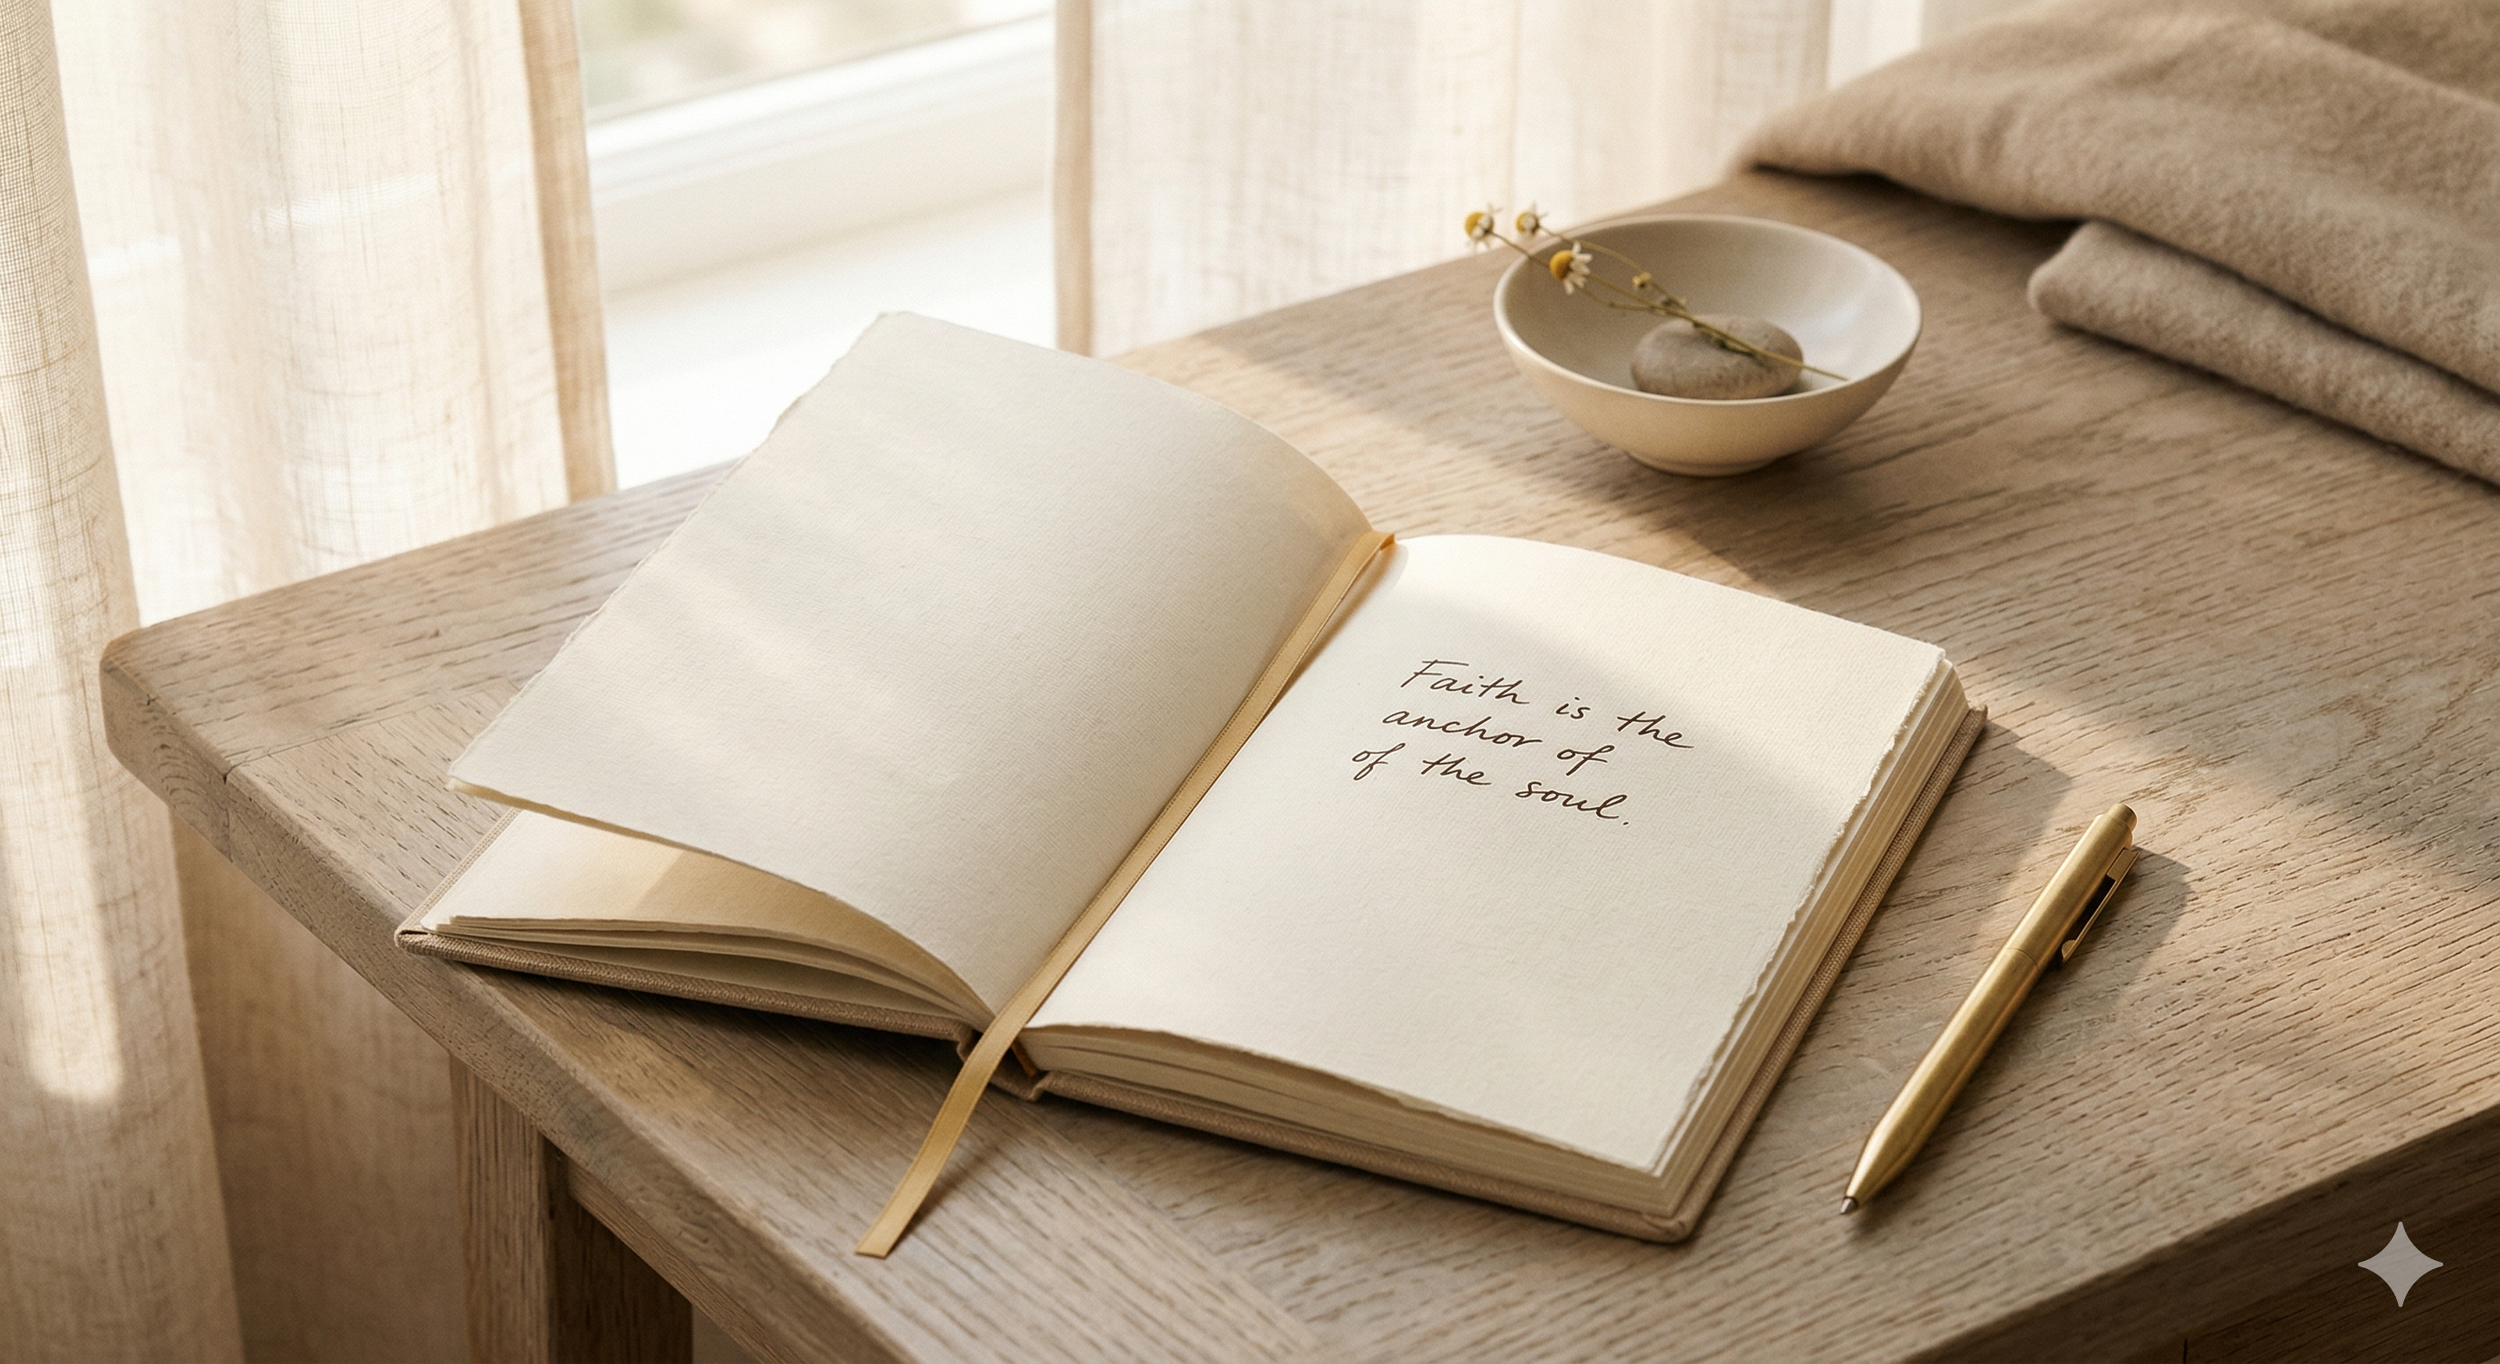 Faith is the
anchor of
of the soul.